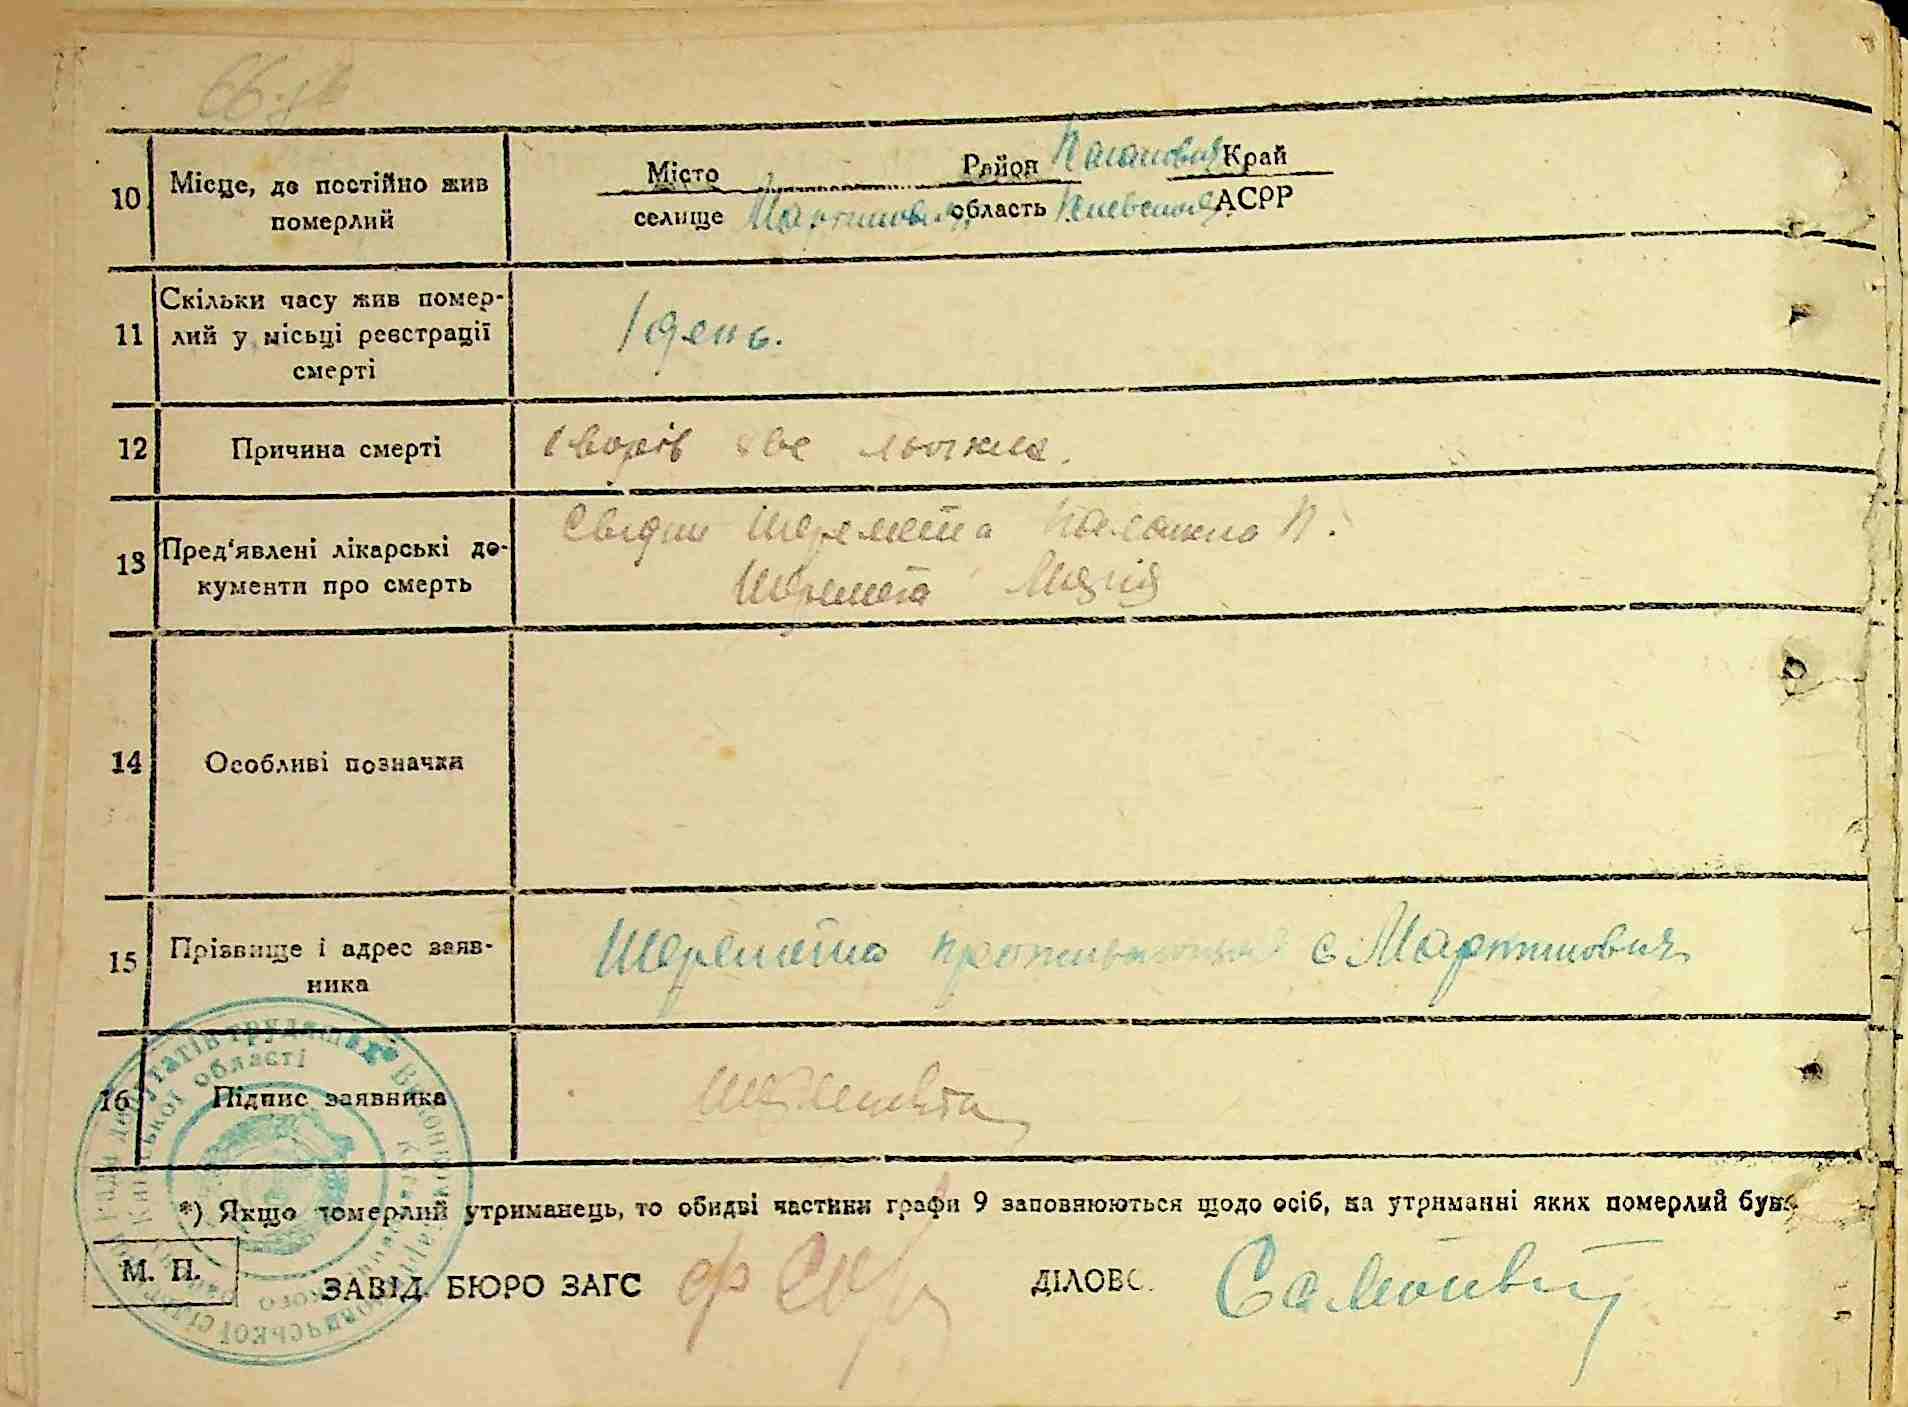 66
10 Місце, де постійно жив померлий
Місто Район Каганович Край
селище Мартиновичі область Киевская АСРР
11 Скільки часу жив помер-
лий у місьці реєстрації
смерті
1 день.
12 Причина смерті
13 Пред'явлені лікарські до-
кументи про смерть
Свідки Шеремета Палажка П.
Шеремета Марія
14 Особливі позначки
15 Прізвище і адрес заяв-
ника
Шеремета с Мартиновичи
16 Підпис заявника
Шеремета
*) Якщо померлий утриманець, то обидві частини графи 9 заповнюються щодо осіб, на утриманні яких померлий був.
М. П.
ЗАВІД. БЮРО ЗАГС
ДІЛОВО.
Рада депутатів трудящих Виконком
Київської області